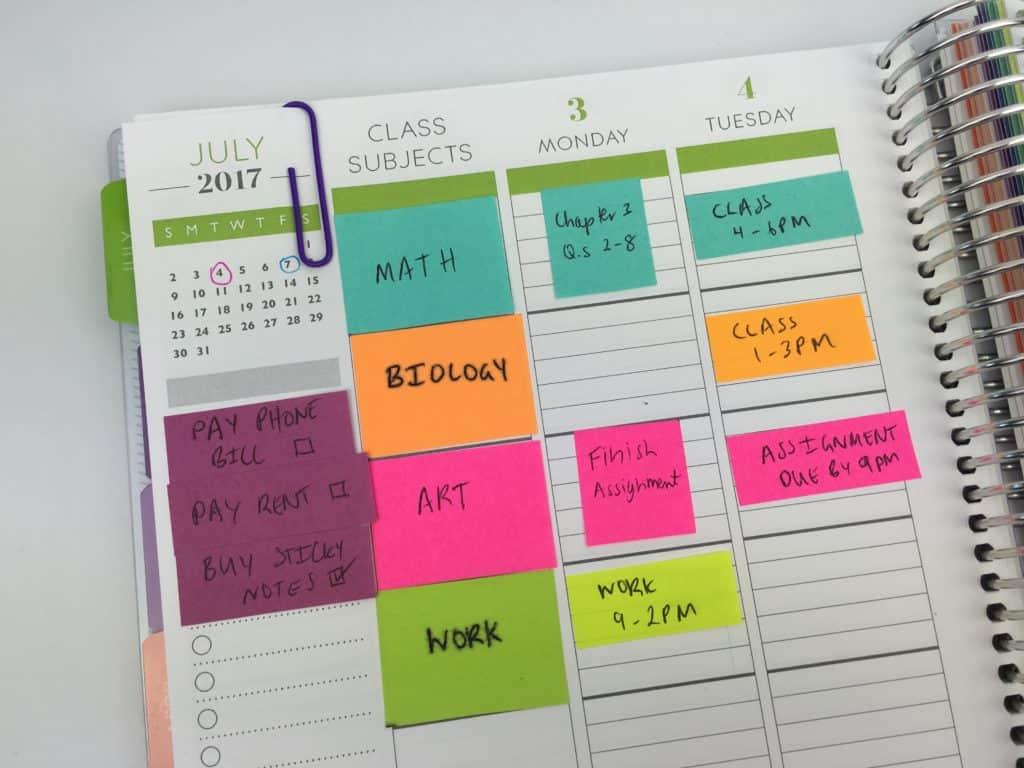 JULY
2017
S M T W T F S
1
2 3 4 5 6 7 8
9 10 11 12 13 14 15
16 17 18 19 20 21 22
23 24 25 26 27 28 29
30 31
PAY PHONE
BILL
PAY RENT
BUY STICKY
NOTES
CLASS
SUBJECTS
MATH
BIOLOGY
ART
WORK
3
MONDAY
Chapter 3
Q.s 2-8
Finish
Assignment
WORK
9-2PM
4
TUESDAY
CLASS
4-6PM
CLASS
1-3PM
ASSIGNMENT
DUE BY 9PM
JULY